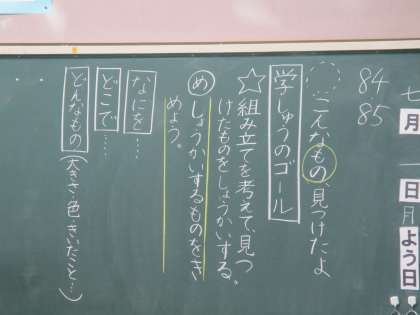 七月一日月よう日
84
85
こんなもの、見つけたよ
学しゅうのゴール
☆組み立てを考えて、見つ
けたものをしょうかいする。
めしょうかいするものをき
めよう。
なにを…
どこで……
どんなもの(大きさ、色、きいたこと…)